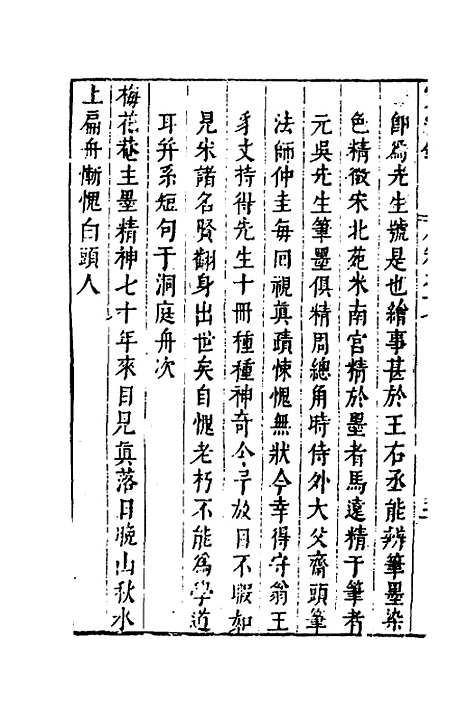 即為先生號是也繪事甚於王右丞能辨筆墨染
色精微宋北苑米南宮精於墨者馬遠精于筆者
元吳先生筆墨俱精周總角時侍外大父齋頭筆
法師仲圭每回視真蹟悚愧無狀今幸得守翁王
身文持得先生十冊種種神奇令寓目不暇如
見宋諸名賢翻身出世矣自愧老朽不能為學道
耳并系短句于洞庭舟次
梅花菴主墨精神七十年來目見真落日晚山秋水
上扁舟慚愧白頭人